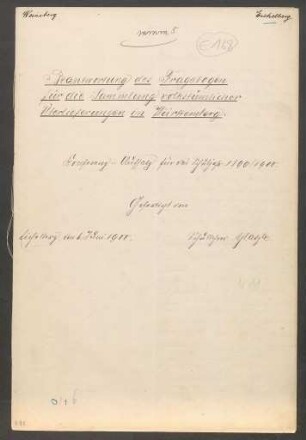 Weinsberg Eichelberg
E 168
Beantwortung des Fragebogen
für die Sammlung volkstümlicher
Überlieferungen in Württemberg.
Konferenz-Aufsatz für das Schuljahr 1900/1901.
Gefertigt von
Eichelberg den 1. Juni 1901. Schullehrer